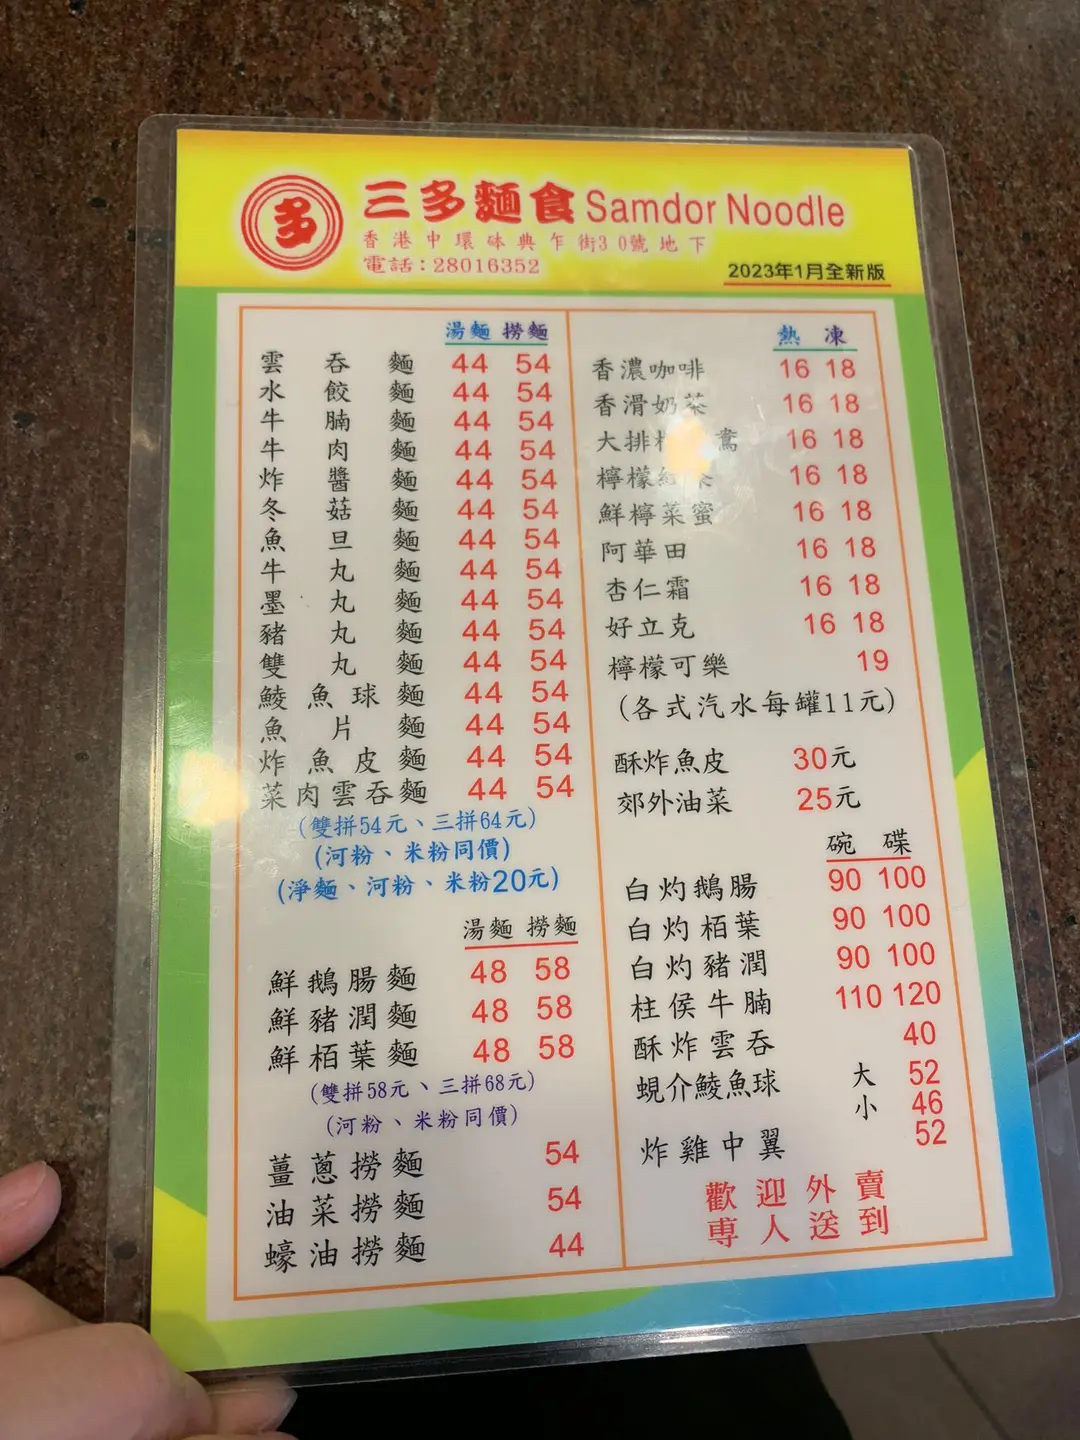 多 三多麵食 Samdor Noodle
香港中環砵典乍街30號地下
電話：28016352
2023年1月全新版
湯麵 撈麵
雲吞麵 44 54
水餃麵 44 54
牛腩麵 44 54
牛肉麵 44 54
炸醬麵 44 54
冬菇麵 44 54
魚旦麵 44 54
牛丸麵 44 54
墨丸麵 44 54
豬丸麵 44 54
雙丸麵 44 54
鯪魚球麵 44 54
魚片麵 44 54
炸魚皮麵 44 54
菜肉雲吞麵 44 54
(雙拼54元、三拼64元)
(河粉、米粉同價)
(淨麵、河粉、米粉20元)
湯麵 撈麵
鮮鵝腸麵 48 58
鮮豬潤麵 48 58
鮮栢葉麵 48 58
(雙拼58元、三拼68元)
(河粉、米粉同價)
薑蔥撈麵 54
油菜撈麵 54
蠔油撈麵 44
熱 凍
香濃咖啡 16 18
香滑奶茶 16 18
大排 鴦 16 18
檸檬紅茶 16 18
鮮檸菜蜜 16 18
阿華田 16 18
杏仁霜 16 18
好立克 16 18
檸檬可樂 19
(各式汽水每罐11元)
酥炸魚皮 30元
郊外油菜 25元
碗 碟
白灼鵝腸 90 100
白灼栢葉 90 100
白灼豬潤 90 100
柱侯牛腩 110 120
酥炸雲吞 40
蜆介鯪魚球 大 52
小 46
炸雞中翼 52
歡迎外賣
專人送到